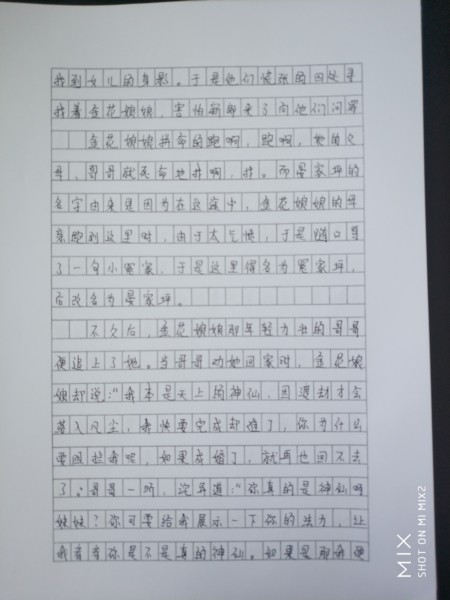 找到女儿的身影。于是他们慌张的四处寻
找着金花娘娘,害怕新郎来了向他们问罪
金花娘娘拼命的跑啊,跑啊。她的父
母、哥哥就死命地找啊,找。而晏家坪的
名字由来是因为在这途中,金花娘娘的母
亲跑到这里时,由于太气愤,于是随口骂
了一句小冤家,于是这里得名为冤家坪,
后改名为晏家坪。
不久后,金花娘娘那年轻力壮的哥哥
便追上了她。当哥哥劝她回家时,金花娘
娘却说:“我本是天上的神仙,因遭劫才会
落入风尘,我快要完成却难了,你为什么
要阻拦我呢,如果成婚了,就再也回不去
了。哥哥一听,诧异道:“你真的是神仙吗
妹妹?你可要给我展示一下你的法力,让
我看看你是不是真的神仙。如果是那我便
MIX
SHOT ON MI MIX2